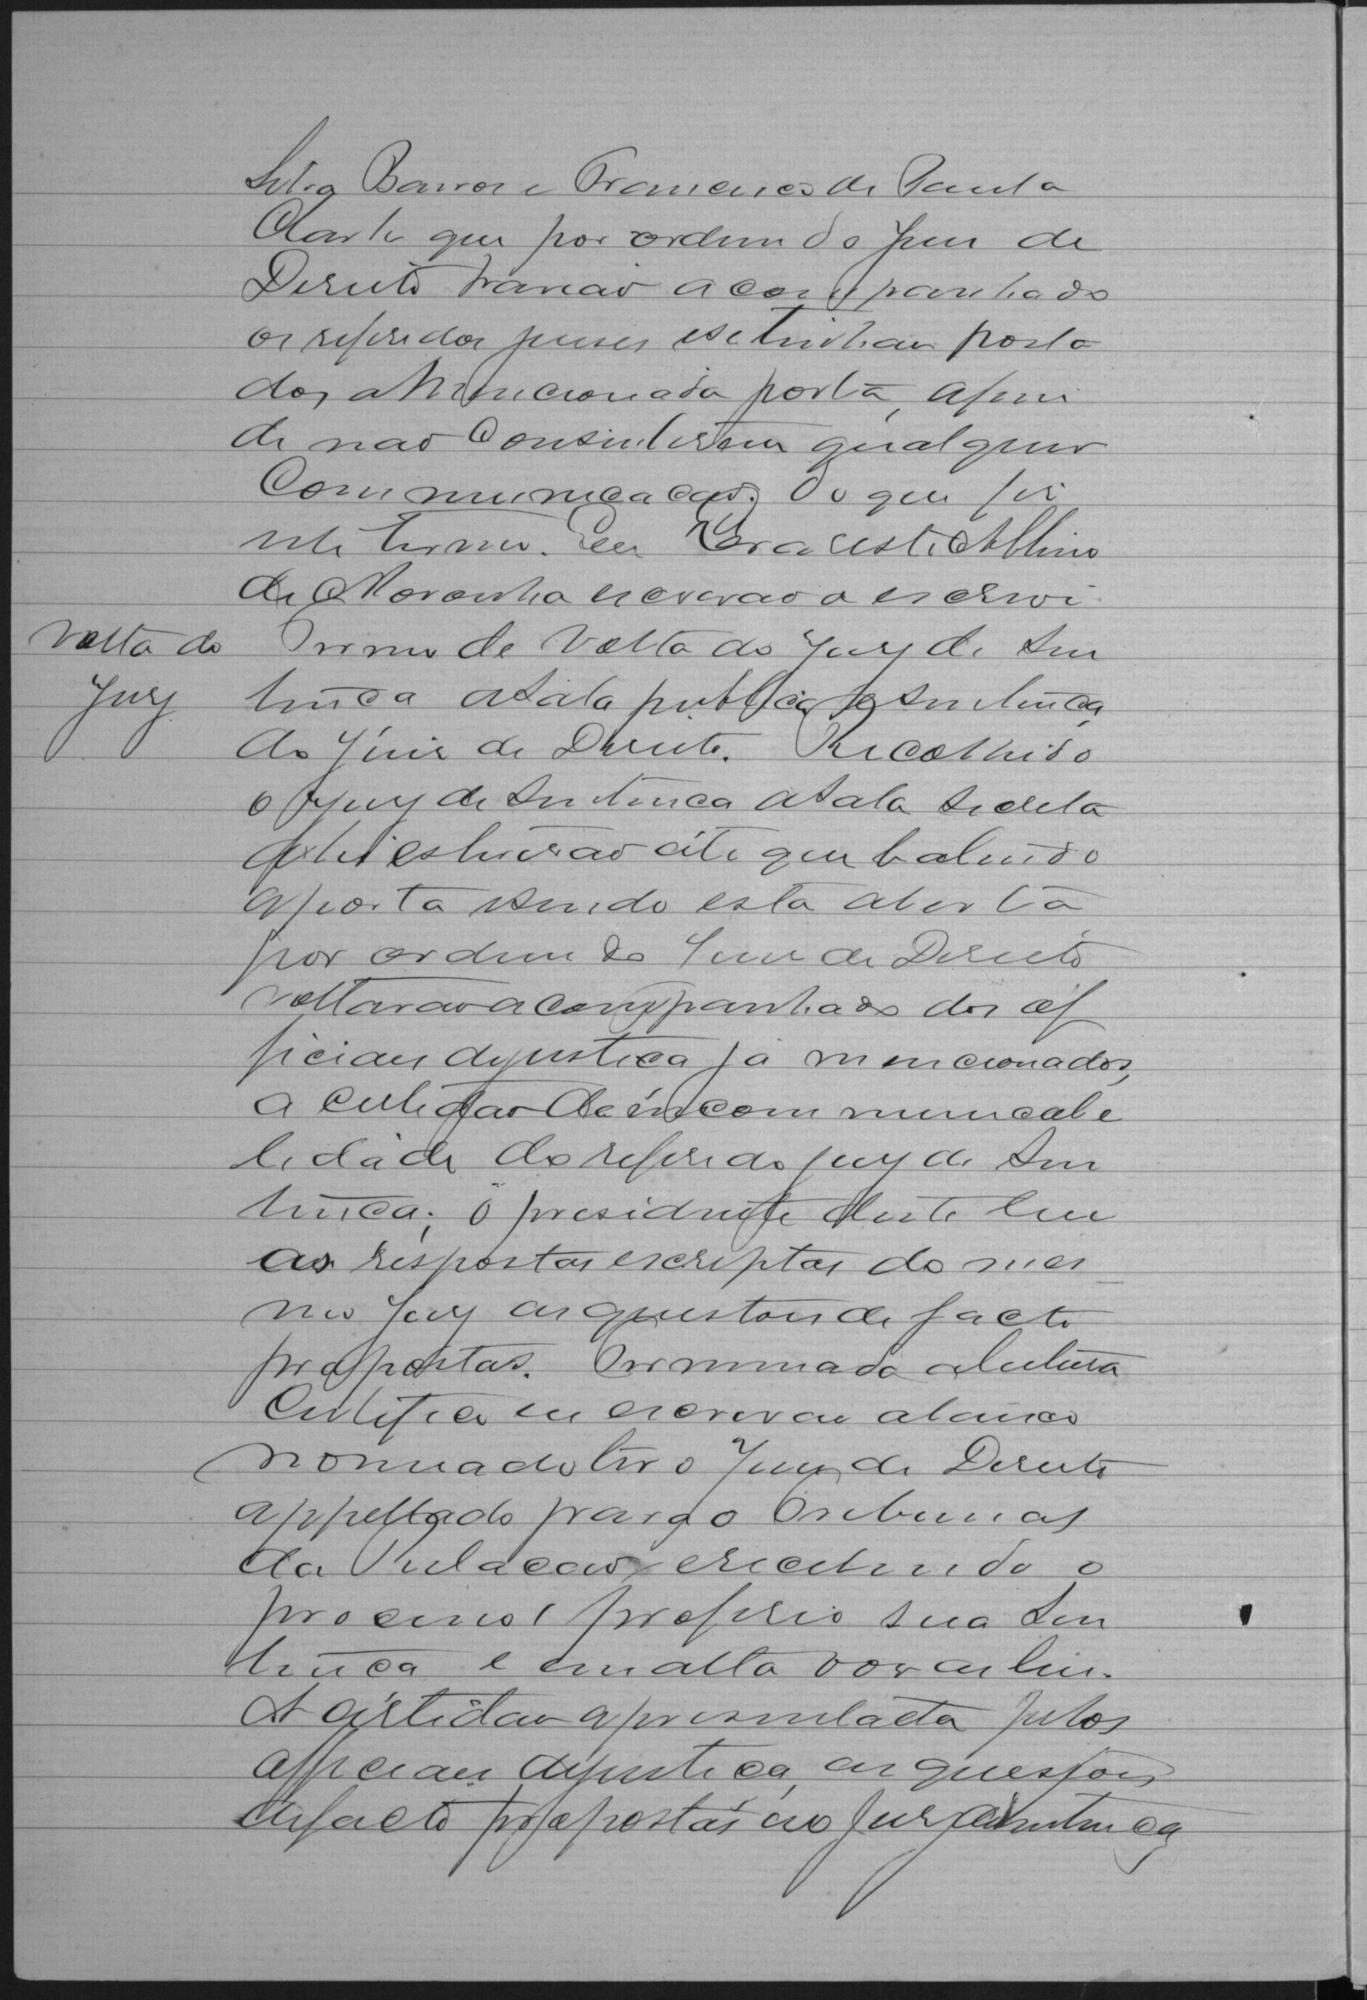 Silva Barros e Francisco de Paula
Duarte que por ordem do Juiz de
Direito havião acompanhado
os referidos juises e se tinhão posta
dos a mencionada porta, afim
de nao consintirem qualquer
Communicacao. Do que fis
este termo. Eu Evaristo Albino
de Noronha escrivao o escrevi.
Volta do Termo de Volta do Jury de Sen
Jury tença a Sala publica e Sentença
do Juis de Direito. Recolhido
o Jury de Sentença a Sala Secreta
ahi estiverao até que batendo
a porta sendo esta aberta
por ordem do Juiz de Direito
voltarao acompanhado dos of
ficiaes de justica ja mencionados,
a certidao da incommunicabe
lidade do referido jury de Sen
tença; o presidente deste leu
as respostas escriptas do mes
mo Jury as questoes de facto
propostas. Terminada a leitura
Certifico eu escrivao abaixo
nomeado ter o Juiz de Direito
appellado para o Tribunal
da Relacao, e recebendo o
processo, proferio sua Sen
tença e em alta vos a leu.
A certidao apresentada pelos
officiaes de justiça, as questões
de facto propostas ao Jury de Sentença